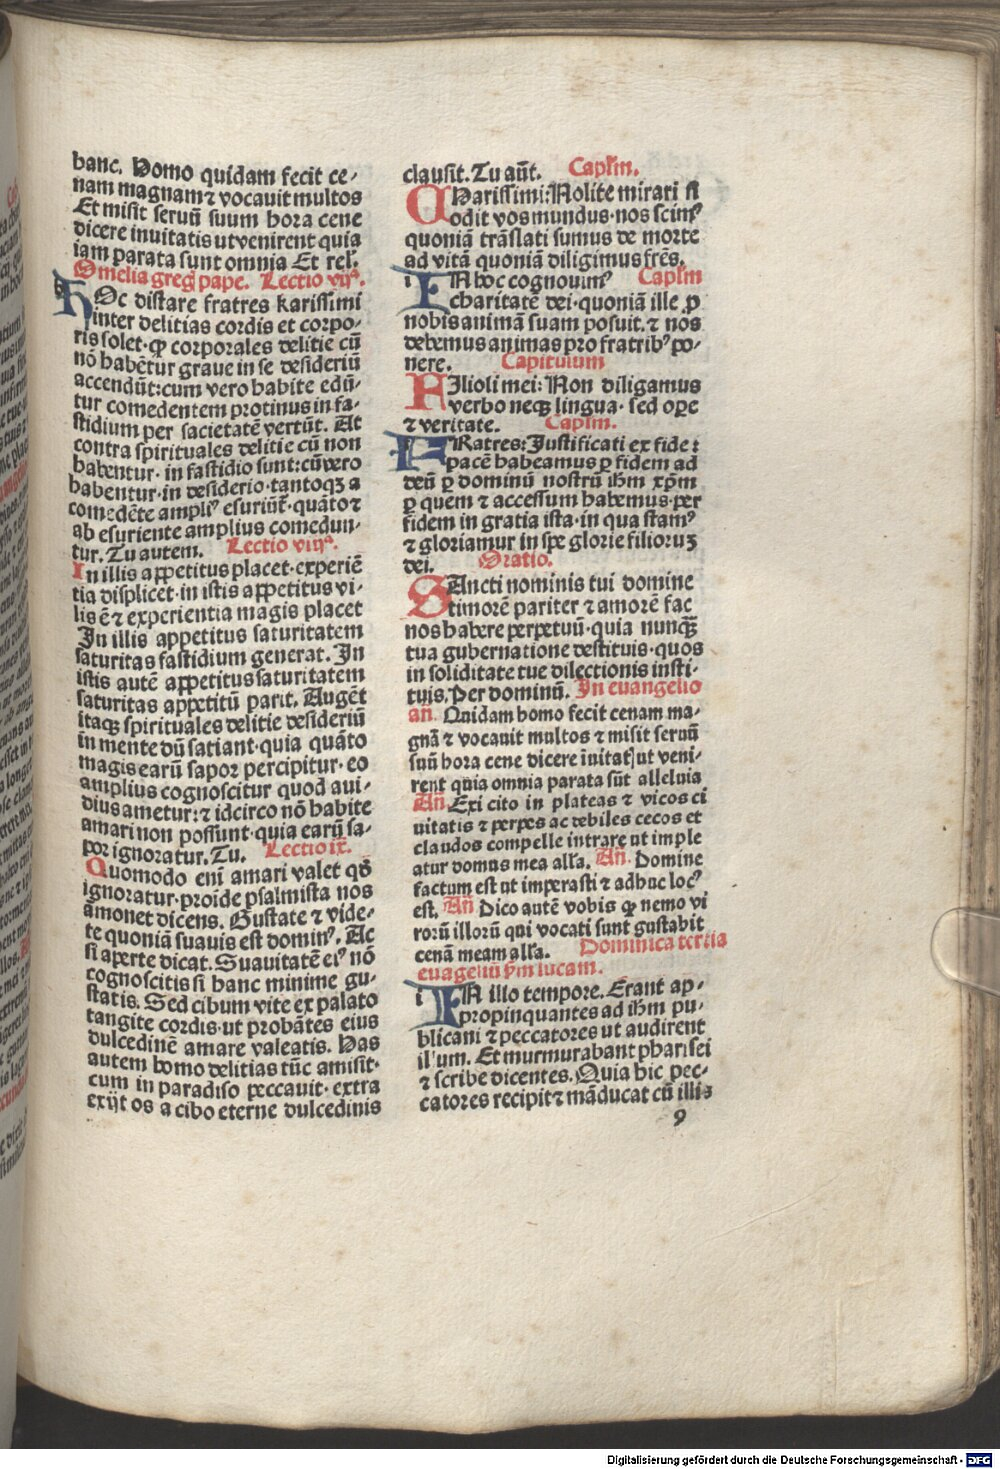 hanc. Homo quidam fecit ce-
nam magnam ⁊ vocauit multos
Et misit seruū suum hora cene
dicere inuitatis ut venirent quia
iam parata sunt omnia Et rel'.
Omelia greg̃ pape. Lectio vijª.
HOc distare fratres karissimi
inter delitias cordis et corpo-
ris solet· ꝙ corporales delitie cū
nō habētur graue in se desideriū
accendūt: cum vero habite edū-
tur comedentem protinus in fa-
stidium per sacietatē vertūt. At
contra spirituales delitie cū non
habentur· in fastidio sunt: cū vero
habentur· in desiderio· tantoqꝫ a
comedēte ampliꝰ esuriūt̃· quāto ⁊
ab esuriente amplius comedun-
tur. Tu autem. Lectio viijª.
In illis appetitus placet· experiē
tia displicet· in istis appetitus vi-
lis ē ⁊ experientia magis placet
In illis appetitus saturitatem
saturitas fastidium generat. In
istis autē appetitus saturitatem
saturitas appetitū parit. Augēt
itaqꝫ spirituales delitie desideriū
in mente dū satiant· quia quāto
magis earū sapor percipitur· eo
amplius cognoscitur quod aui-
dius ametur: ⁊ idcirco nō habite
amari non possunt· quia earū sa-
por ignoratur. Tu. Lectio ix.
Quomodo enī amari valet qđ
ignoratur· proide psalmista nos
amonet dicens. Gustate ⁊ vide-
te quoniā suauis est dominꝰ. Ac
si aperte dicat. Suauitatē eiꝰ nō
cognoscitis si hanc minime gu-
statis. Sed cibum vite ex palato
tangite cordis· ut probātes eius
dulcedinē amare valeatis. Has
autem homo delitias tūc amisit·
cum in paradiso peccauit· extra
exijt os a cibo eterne dulcedinis
clausit. Tu aūt. Capl'm.
CHarissimi: Nolite mirari si
odit vos mundus· nos scimꝰ
quoniā trāslati sumus de morte
ad vitā quoniā diligimus frēs.
IN hoc cognouimꝰ Capl'm
charitatē dei· quoniā ille ꝓ
nobis animā suam posuit. ⁊ nos
debemus animas pro fratribꝰ po-
nere. Capitulum
FIlioli mei: Non diligamus
verbo neqꝫ lingua· sed oꝑe
⁊ veritate. Capl'm.
FRatres: Iustificati ex fide:
pacē habeamus ꝑ fidem ad
deū ꝑ dominū nostrū ihm̄ xp̄m
ꝑ quem ⁊ accessum habemus· per
fidem in gratia ista· in qua stamꝰ
⁊ gloriamur in spe glorie filioruꝫ
dei. Oratio.
SAncti nominis tui domine
timorē pariter ⁊ amorē fac
nos habere perpetuū· quia nunqꝫ̄
tua gubernatione destituis· quos
in soliditate tue dilectionis insti-
tuis. Per dominū. In euangelio
añ. Quidam homo fecit cenam ma-
gnā ⁊ vocauit multos ⁊ misit seruū
suū hora cene dicere īuitatꝭ ut veni-
rent quia omnia parata sūt alleluia
Añ. Exi cito in plateas ⁊ vicos ci
uitatis ⁊ pꝑes ac debiles cecos et
claudos compelle intrare ut imple
atur domus mea alľa. Añ. Domine
factum est ut imperasti ⁊ adhuc locꝰ
est. Añ Dico autē vobis ꝙ nemo vi
rorū illorū qui vocati sunt gustabit
cenā meam alľa. Dominica tertia
euāgeliū ẜm lucam.
IN illo tempore. Erant ap-
propinquantes ad ihm̄ pu-
blicani ⁊ peccatores ut audirent
illum. Et murmurabant pharisei
⁊ scribe dicentes. Quia hic pec-
catores recipit ⁊ māducat cū illis
9
Digitalisierung gefördert durch die Deutsche Forschungsgemeinschaft - DFG